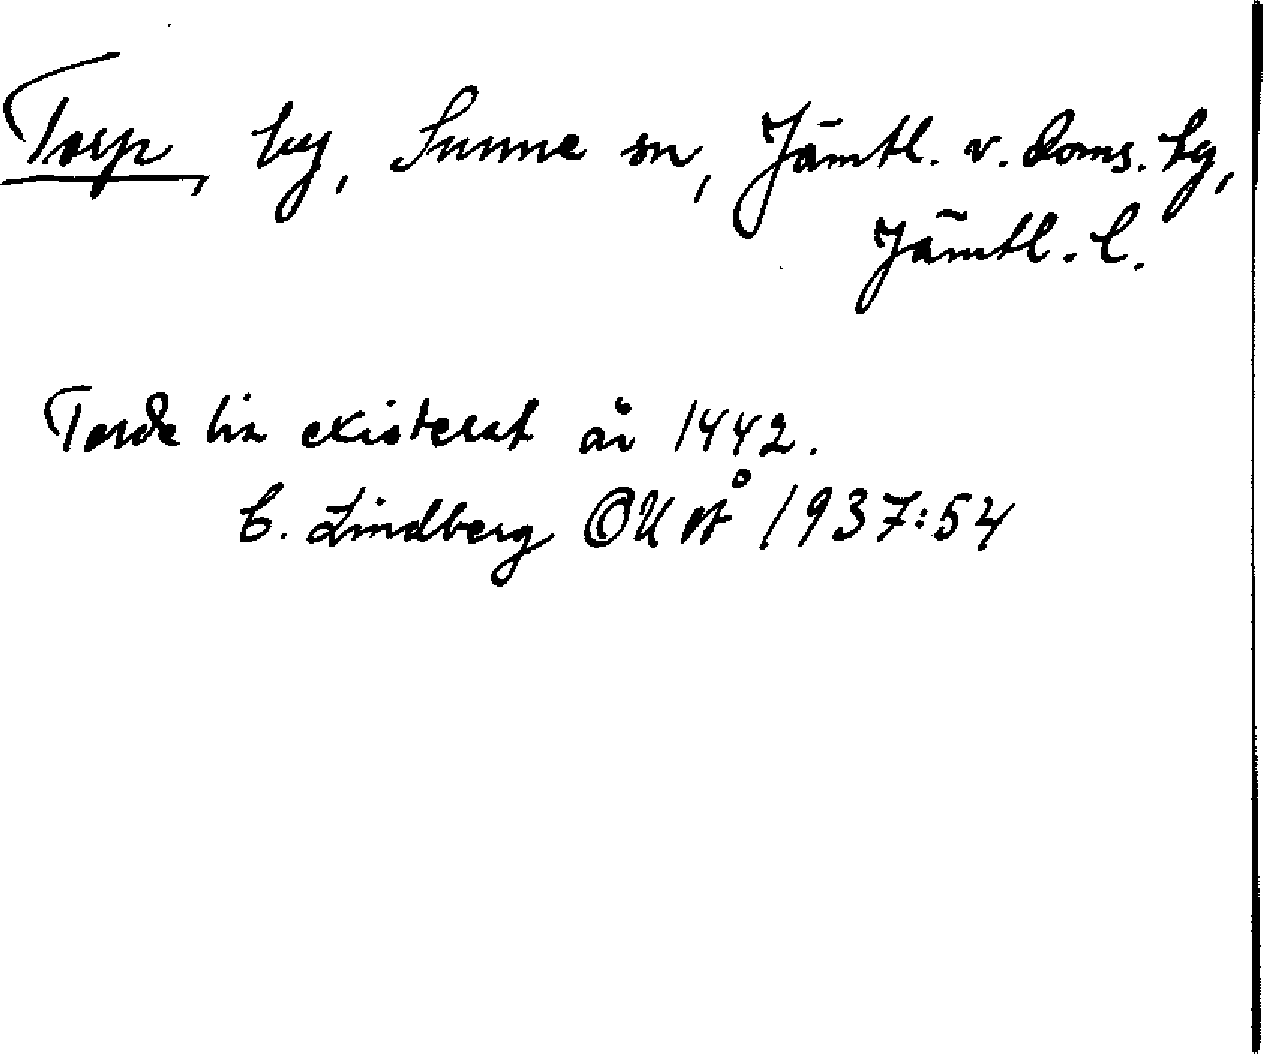 Torp, by, Sunne sn, Jämtl. v. doms. lg,
Jämtl. l.
Torde ha existerat år 1442.
C. Lindberg OUÅ 1937:54